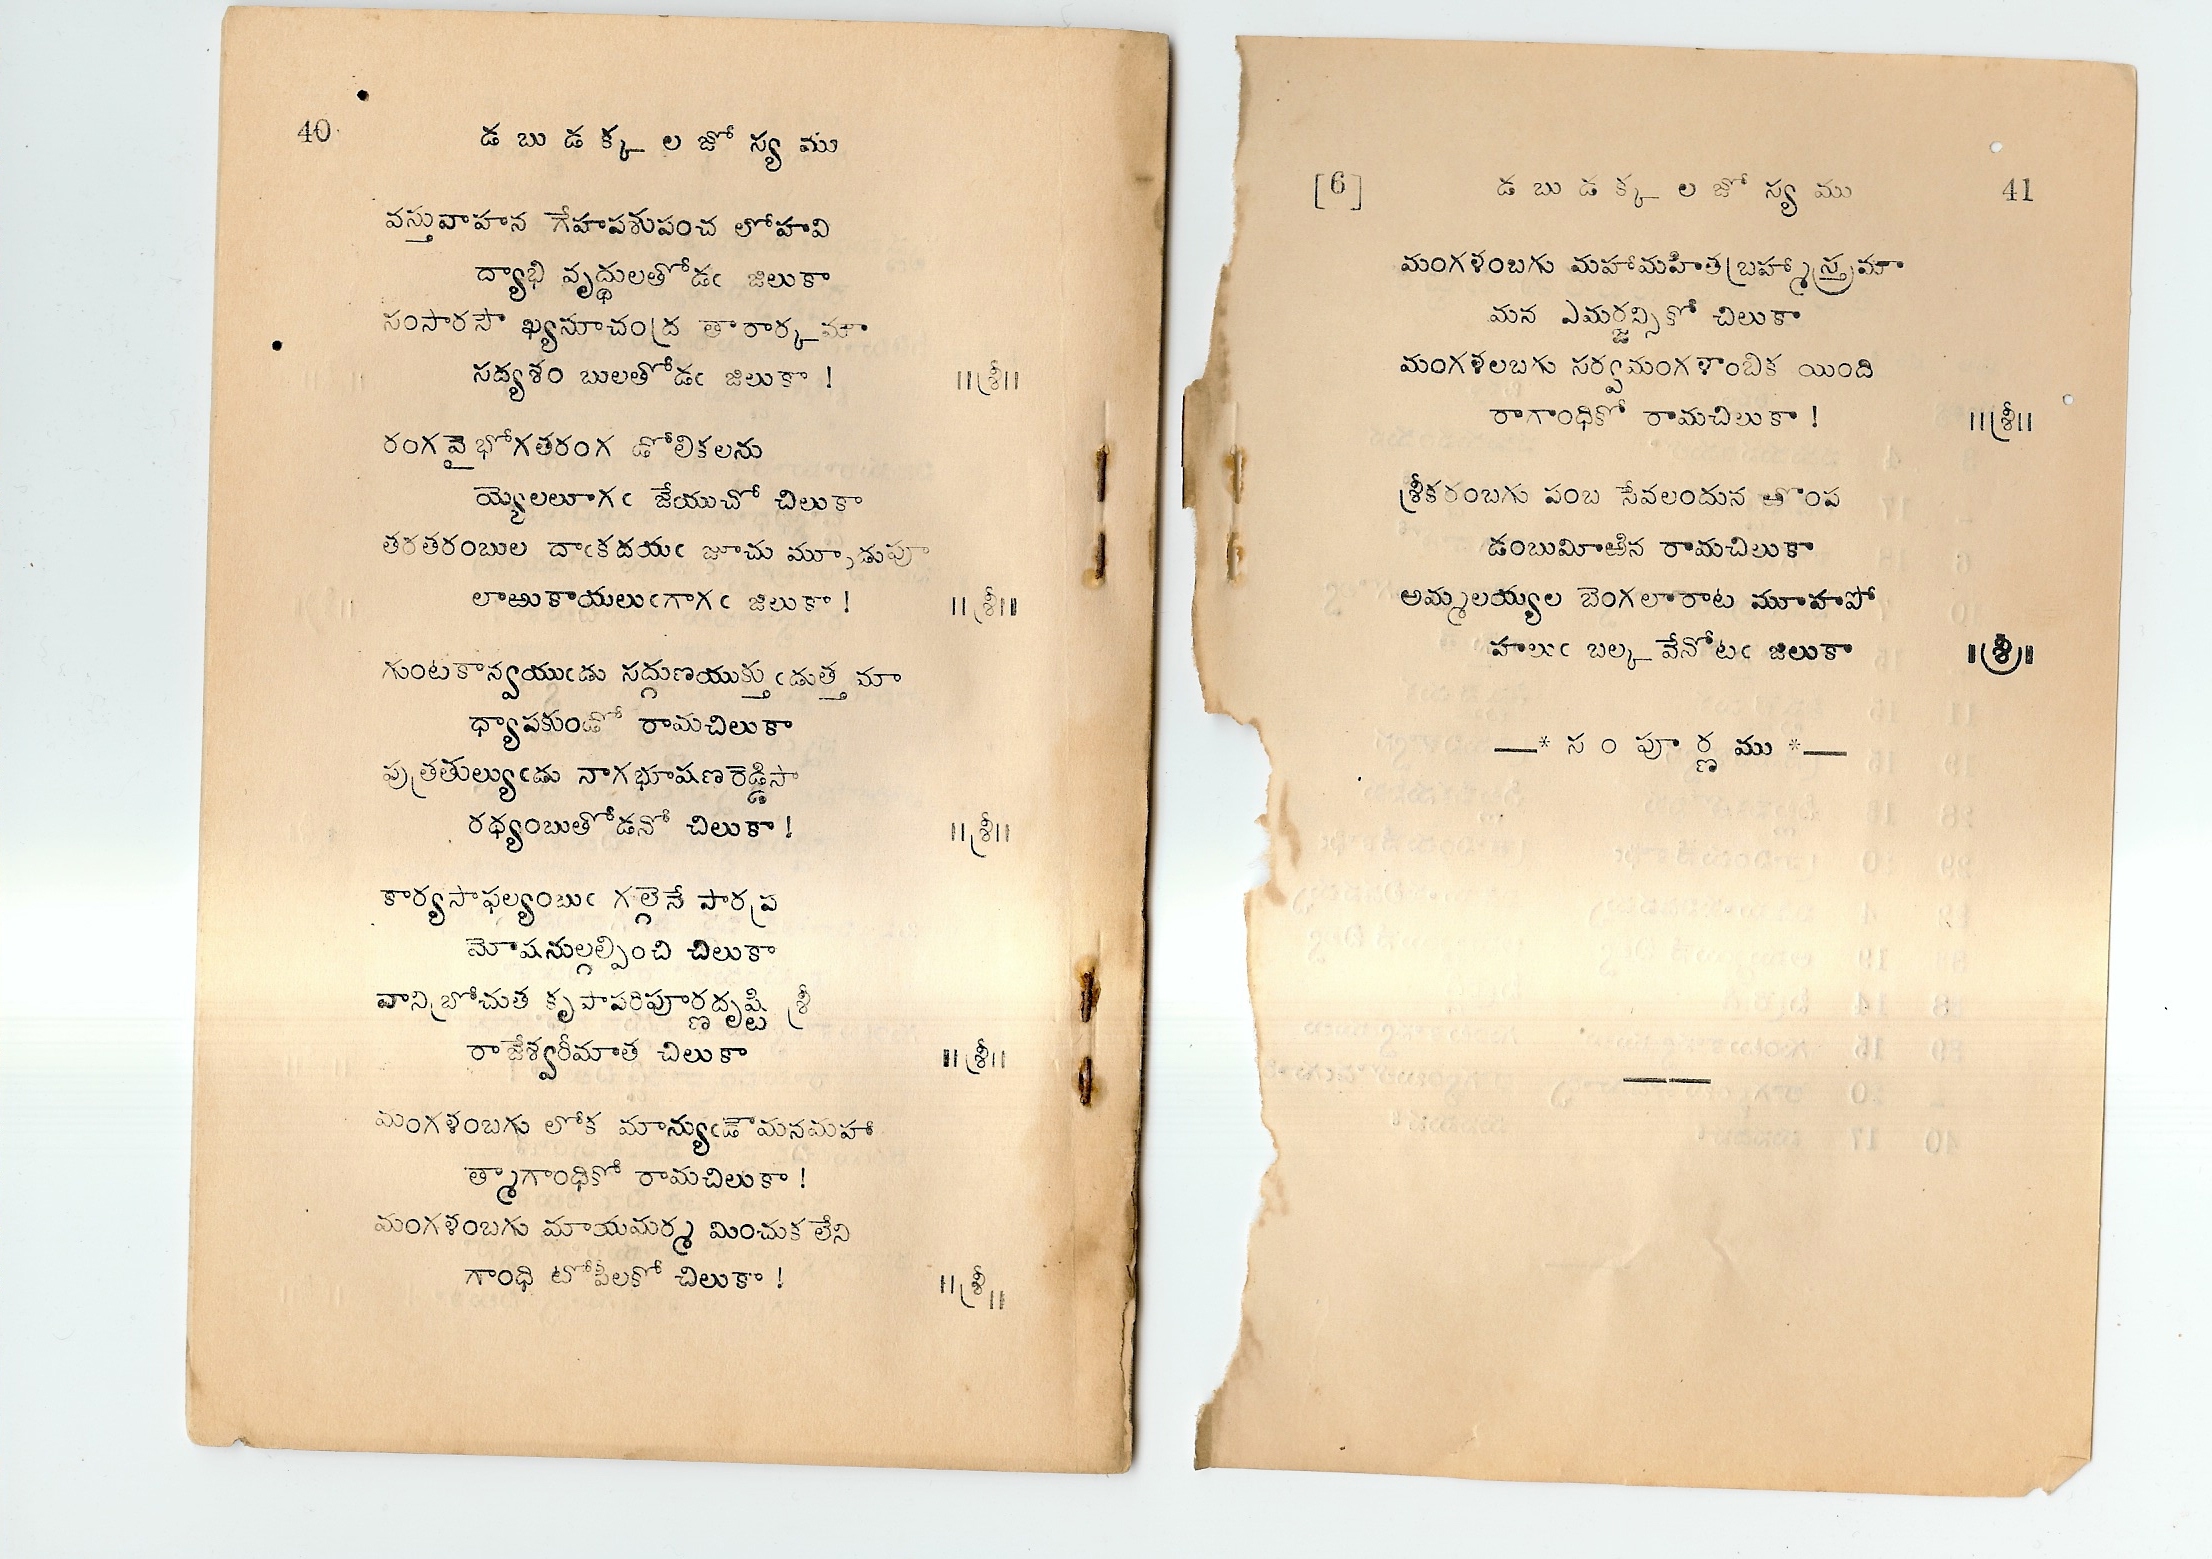 40
డ బు డ క్క ల జో స్య ము
వస్తువాహన గేహాపశుపంచ లోహవి
ద్యాభి వృద్ధులతోడఁ జిలుకా
సంసారసౌ ఖ్యనూచంద్ర తారార్క మా
సద్యశం బులతోడఁ జిలుకా ! ॥శ్రీ॥
రంగవైభోగతరంగ డోలికలను
య్యెలలూగఁ జేయుచో చిలుకా
తరతరంబుల దాఁకదయఁ జూచు మ్మూడుపూ
లాఱుకాయలుఁగాగఁ జిలుకా ! ॥శ్రీ॥
గుంటకాన్వయుఁడు సద్గుణయుక్తుఁడుత్త మా
ధ్యాపకుండో రామచిలుకా
పుత్రతుల్యుఁడు నాగభూషణరెడ్డిసా
రథ్యంబుతోడనో చిలుకా ! ॥శ్రీ॥
కార్యసాఫల్యంబుఁ గల్గెనే పారప్ర
మోషనుల్గల్పించి చిలుకా
వానిబ్రోచుత కృపాపరిపూర్ణదృష్టి శ్రీ
రాజేశ్వరీమాత చిలుకా ॥శ్రీ॥
మంగళంబగు లోక మాన్యుఁడౌమనమహా
త్మాగాంధికో రామచిలుకా !
మంగళంబగు మాయమర్మ మించుక లేని
గాంధి టోపీలకో చిలుకా ! ॥శ్రీ॥
[6] డ బు డ క్క ల జో స్య ము 41
మంగళంబగు మహామహితబ్రహ్మాస్త్రమా
మన ఎమర్జన్సికో చిలుకా
మంగళలబగు సర్వమంగళాంబిక యింది
రాగాంధికో రామచిలుకా ! ॥శ్రీ॥
శ్రీకరంబగు పంబ సేవలందున
డంబుమీఱిన రామచిలుకా
అమ్మలయ్యల బెంగలారాట మూహపో
హలుఁ బల్క వేనోటఁ జిలుకా ॥శ్రీ॥
—* స ం పూ ర్ణ ము *—